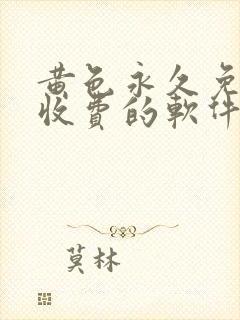 黄色永久免
收费的軟件
莫林